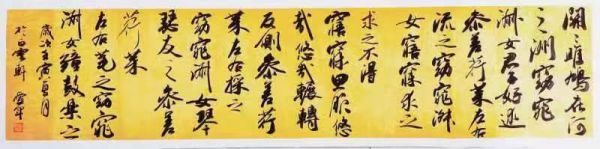 關〻雎鳩在河
之洲窈窕
淑女君子好逑
參差荇菜左右
流之窈窕淑
女寤寐求之
求之不得
寤寐思服悠
哉悠哉輾轉
反側參差荇
菜左右採之
窈窕淑女琴
瑟友之參差
荇菜
左右芼之窈窕
淑女鐘鼓樂之
歲次壬寅貞月
於白雲軒